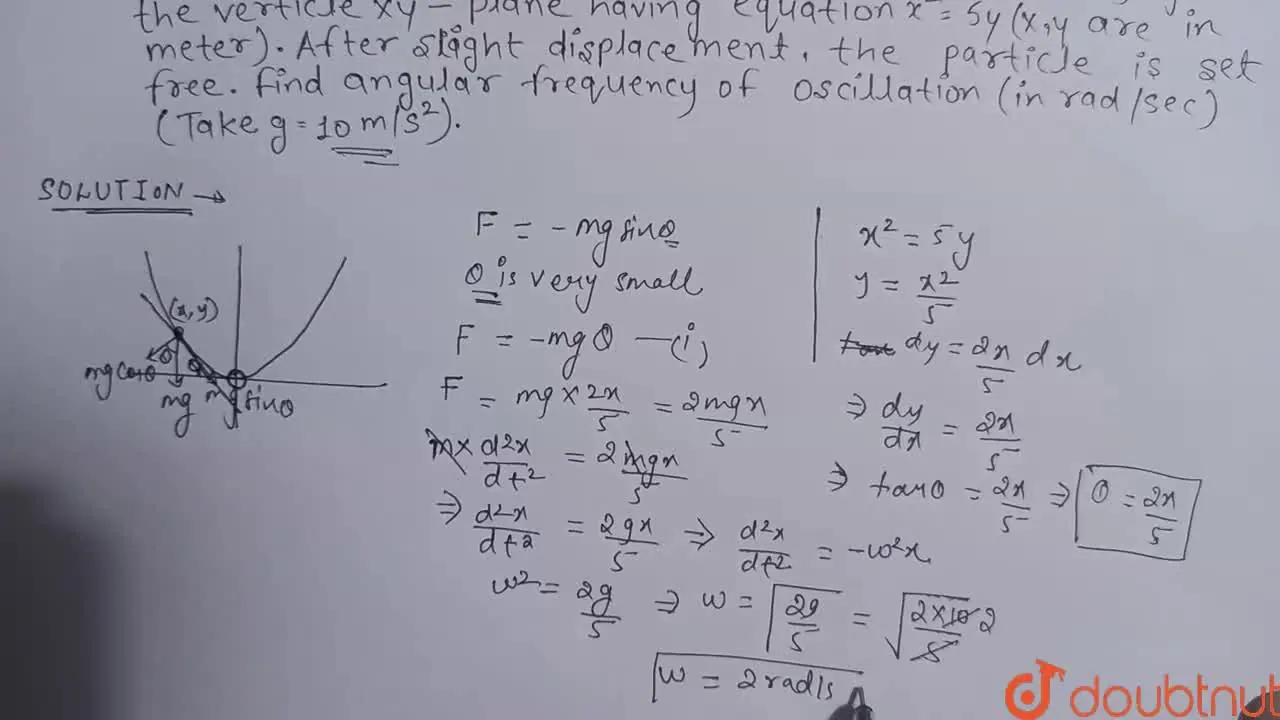 the verticle xy - plane having equation x² = 5y (x, y are in
meter). After slight displacement, the particle is set
free. find angular frequency of oscillation (in rad/sec)
(Take g = 10 m/s²).
SOLUTION →
(x, y)
θ
θ
mg cosθ
mg
mg sinθ
F = -mg sinθ
θ is very small
F = -mgθ —(i)
F = mg × 2x/5 = 2mgx/5
m × d2x/dt2 = 2mgx/5
⇒ d2x/dt2 = 2gx/5 ⇒ d2x/dt2 = -ω²x
ω2 = 2g/5 ⇒ ω = √2g/5 = √2×10/5 2
ω = 2 rad/s
x² = 5y
y = x2/5
dy = 2x/5 dx
⇒ dy/dx = 2x/5
⇒ tanθ = 2x/5 ⇒ θ = 2x/5
doubtnut